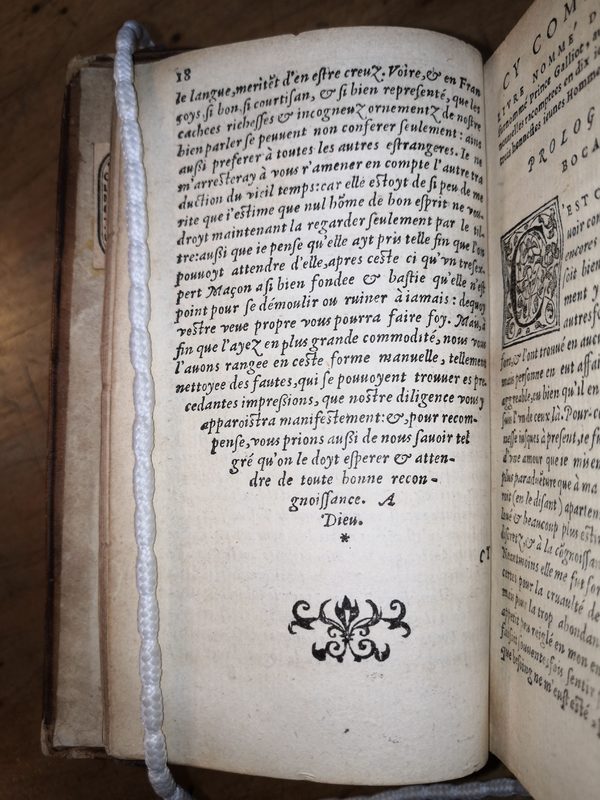 18
le langue, meritẽt d'en estre creuz. Voire, & en Fran
çoys, si bon, si courtisan, & si bien representé, que les
cachees richesses & incogneuz ornementz de nostre
bien parler se peuvent non conferer seulement: ains
aussi preferer à toutes les autres estrangeres. Ie ne
m'arresteray à vous r'amener en compte l'autre tra
duction du vieil temps: car elle estoyt de si peu de me
rite que i'estime que nul hõme de bon esprit ne vou-
droyt maintenant la regarder seulement par le til-
tre: aussi que ie pense qu'elle ayt pris telle fin que l'on
pouuoyt attendre d'elle, apres ceste ci qu'vn tresex-
pert Maçon a si bien fondee & bastie qu'elle n'est
point pour se démoulir ou ruiner à iamais: dequoy
vostre veue propre vous pourra faire foy. Mais, à
fin que l'ayez en plus grande commodité, nous vous
l'auons rangee en ceste forme manuelle, tellement
nettoyee des fautes, qui se pouuoyent trouuer es pre
cedantes impressions, que nostre diligence vous y
apparoistra manifestement: &, pour recom-
pense, vous prions aussi de nous sauoir tel
gré qu'on le doyt esperer & atten-
dre de toute bonne recon-
gnoissance. A
Dieu.
*
CY COM
LIVRE NOMMÉ, D
surnommé Prince Galliot,
nouuelles racomptees en dix io
trois
PROLOG
BOCA
'EST C
uoir con
encores
soit bien
ment y
autresfo
fort, & l'ont trouué en aucu
mais personne en eut affai
aggreable, ou bien qu'il en
suis l'vn de ceux là. Pource
messe iusques à present, ie fu
d'vne amour que ie mis en
plus
mis (en le disant) apartena
loué & beaucoup plus estim
& à la cõgnoissan
elle me fut for
pour la cruaulté de
mais pour la trop abondan
reiglé en mon en
sentir